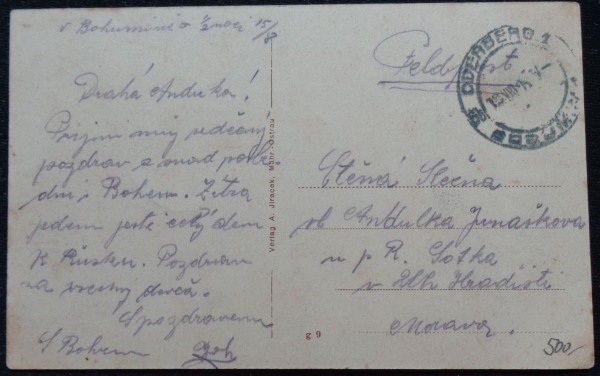 v Bohumíně v noci 15/8
Drahá Andulka!
Přijmi můj srdečný
pozdrav a snad posle
dni s Bohem. Zitra
jedem jestě celý den
K Rusku. Pozdrav
na všechny děvča.
S pozdravem
S Bohem
Verlag A. Jiracek, Mähr. Ostrau
Feldpost
ODERBERG 1
Ctěná Slečna
sl. Andulka Junaškova
u p. R. Sotka
v Uh. Hradišti
Morava.
g 9
500,-